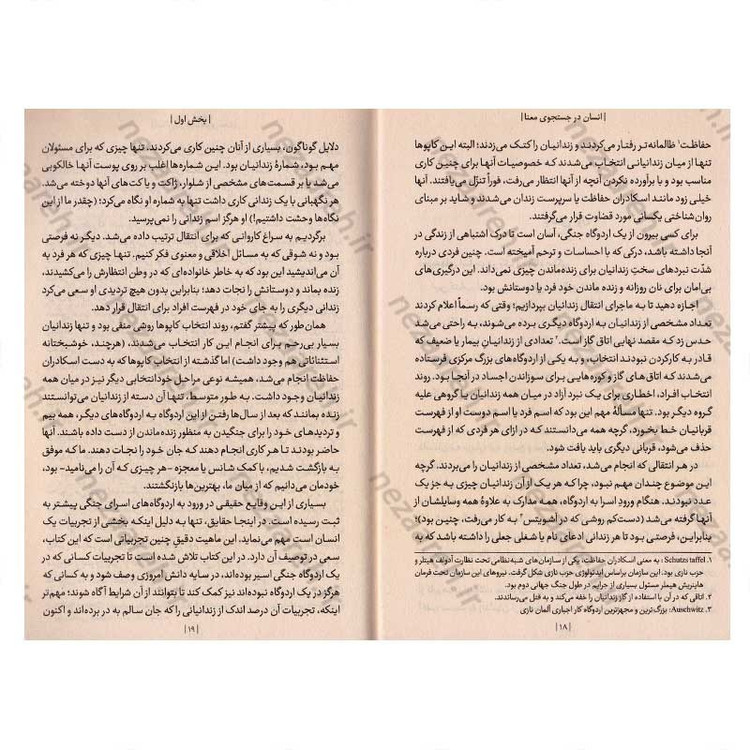 | انسان در جستجوی معنا |
حفاظت¹ ظالمانه‌تر رفتار می‌کردند و زندانیان را کتک می‌زدند؛ البته این کاپوها
تنها از میان زندانیانی انتخاب می‌شدند که خصوصیات آنها برای چنین کاری
مناسب بود و با برآورده نکردن آنچه از آنها انتظار می‌رفت، فوراً تنزّل می‌یافتند. آنها
خیلی زود مانند اسکادران حفاظت یا سرپرست زندان می‌شدند و شاید بر مبنای
روان‌شناختی یکسانی مورد قضاوت قرار می‌گرفتند.
برای کسی بیرون از یک اردوگاه جنگی، آسان است تا درک اشتباهی از زندگی در
آنجا داشته باشد، درکی که با احساسات و ترحم آمیخته است. چنین فردی درباره
شدّت نبردهای سختِ زندانیان برای زنده‌ماندن چیزی نمی‌داند. این درگیری‌های
بی‌امان برای نان روزانه و زنده ماندن خود فرد یا دوستانش بود.
اجازه دهید تا به ماجرای انتقال زندانیان بپردازیم؛ وقتی که رسماً اعلام کردند
تعداد مشخصی از زندانیان به اردوگاه دیگری برده می‌شوند، به راحتی می‌شد
حدس زد که مقصد نهایی اتاق گاز است.² تعدادی از زندانیانِ بیمار یا ضعیف که
قادر به کارکردن نبودند انتخاب، و به یکی از اردوگاه‌های بزرگ مرکزی فرستاده
می‌شدند که اتاق‌های گاز و کوره‌هایی برای سوزاندن اجساد در آنجا بود. روند
انتخاب افراد، اخطاری برای یک نبرد آزاد در میان همه زندانیان یا گروهی علیه
گروه دیگر بود. تنها مسألهٔ مهم این بود که اسم فرد یا اسم دوست او از فهرست
قربانیان خط بخورد، گرچه همه می‌دانستند که در ازای هر فردی که از فهرست
حذف می‌شود، قربانی دیگری باید یافت شود.
در هر انتقالی که انجام می‌شد، تعداد مشخصی از زندانیان را می‌بردند. گرچه
این موضوع چندان مهم نبود، چرا که هر یک از آن زندانیان چیزی به جز یک
عدد نبودند. هنگام ورودِ اسرا به اردوگاه، همه مدارک به علاوهٔ همه وسایلشان از
آنها گرفته می‌شد (دست‌کم روشی که در آشویتس³ به کار می‌رفت، چنین بود)؛
بنابراین، فرصتی بود تا هر زندانی ادعای نام یا شغلی جعلی را داشته باشد که به
۱. Schutzstaffel: به معنی اسکادران حفاظت، یکی از سازمان‌های شبه‌نظامی تحت نظارت آدولف هیتلر و
حزب نازی بود. این سازمان براساس ایدئولوژی حزب نازی شکل گرفت. نیروهای این سازمان تحت فرمان
هاینریش هیملر مسئول بسیاری از جرایم در طول جنگ جهانی دوم بود.
۲. اتاقی که در آن با استفاده از گاز زندانیان را خفه می‌کند و به قتل می‌رساندند.
۳. Auschwitz: بزرگ‌ترین و مجهزترین اردوگاه کار اجباری آلمان نازی
| ۱۸ |
| بخش اول |
دلایل گوناگون، بسیاری از آنان چنین کاری می‌کردند. تنها چیزی که برای مسئولان
مهم بود، شمارهٔ زندانیان بود. این شماره‌ها اغلب بر روی پوست آنها خالکوبی
می‌شد یا بر قسمت‌های مشخصی از شلوار، ژاکت و یا کت‌های آنها دوخته می‌شد.
هر نگهبانی با یک زندانی کاری داشت تنها به شماره او نگاه می‌کرد؛ (چقدر ما از این
نگاه‌ها وحشت داشتیم!) او هرگز اسم زندانی را نمی‌پرسید.
برگردیم به سراغ کاروانی که برای انتقال ترتیب داده می‌شد. دیگر نه فرصتی
بود و نه شوقی که به مسائل اخلاقی و معنوی فکر کنیم. تنها چیزی که هر فرد به
آن می‌اندیشید این بود که به خاطر خانواده‌ای که در وطن انتظارش را می‌کشیدند،
زنده بماند و دوستانش را نجات دهد؛ بنابراین بدون هیچ تردیدی او سعی می‌کرد
زندانی دیگری را به جای خود در فهرست افراد برای انتقال قرار دهد.
همان‌طور که پیشتر گفتم، روند انتخاب کاپوها روشی منفی بود و تنها زندانیان
بسیار بی‌رحم برای انجام این کار انتخاب می‌شدند، (هرچند، خوشبختانه
استثنائاتی هم وجود داشت) اما گذشته از انتخاب کاپوها که به دست اسکادران
حفاظت انجام می‌شد، همیشه نوعی مراحل خودانتخابی دیگر نیز در میان همه
زندانیان وجود داشت. به طور متوسط، تنها آن دسته از زندانیان می‌توانستند
زنده بمانند که بعد از سال‌ها رفتن از این اردوگاه به اردوگاه‌های دیگر، همه بیم
و تردیدهای خود را برای جنگیدن به منظور زنده‌ماندن از دست داده باشند. آنها
حاضر بودند تا هر کاری انجام دهند که جان خود را نجات دهند. ما که موفق
به بازگشت شدیم، با کمک شانس یا معجزه -هر چیزی که آن را می‌نامید- بود،
خودمان می‌دانیم که از میان ما، بهترین‌ها بازنگشتند.
بسیاری از این وقایع حقیقی در ورود به اردوگاه‌های اسرای جنگی پیشتر به
ثبت رسیده است. در اینجا حقایق، تنها به دلیل اینکه بخشی از تجربیات یک
انسان است مهم می‌نماید. این ماهیت دقیقِ چنین تجربیاتی است که این کتاب،
سعی در توصیف آن دارد. در این کتاب تلاش شده است تا تجربیات کسانی که در
یک اردوگاه جنگی اسیر بوده‌اند، در سایه دانش امروزی وصف شود و به کسانی که
هرگز در یک اردوگاه نبوده‌اند نیز کمک کند تا بتوانند از آن شرایط آگاه شوند؛ مهم‌تر
اینکه، تجربیات آن درصد اندک از زندانیانی را که جان سالم به در برده‌اند و اکنون
| ۱۹ |
nezaareh.ir